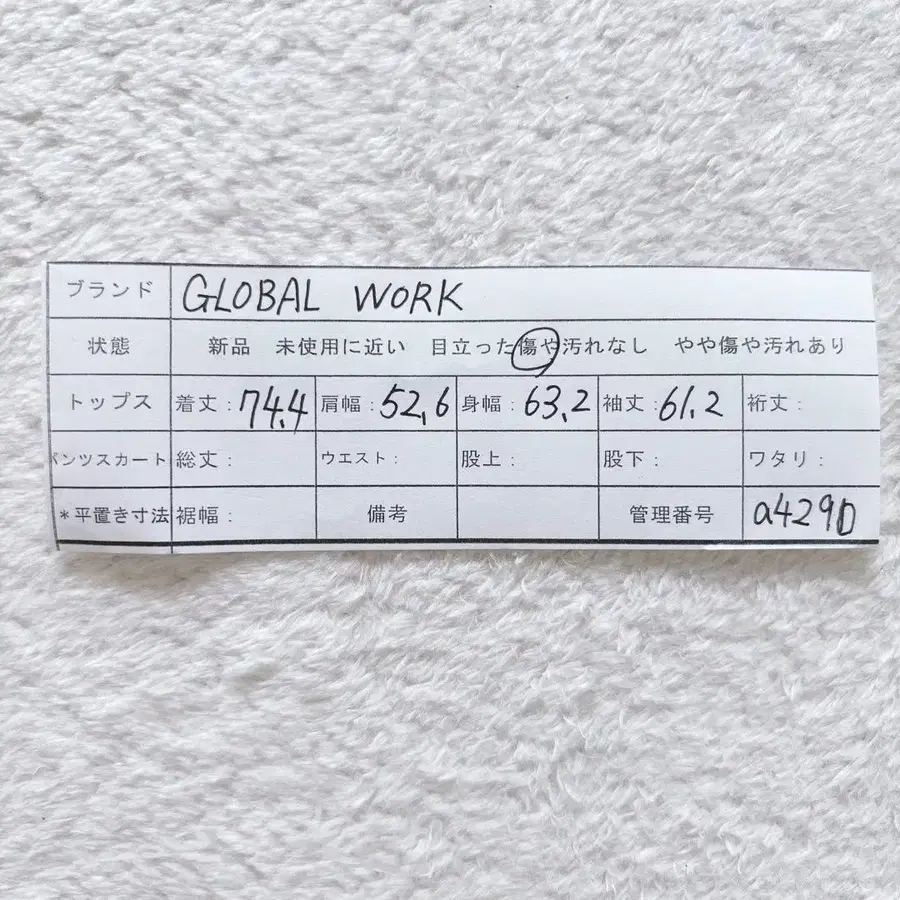 ブランド GLOBAL WORK
状態 新品 未使用に近い 目立った傷や汚れなし やや傷や汚れあり
トップス 着丈：74.4 肩幅：52.6 身幅：63.2 袖丈：61.2 裄丈：
パンツスカート 総丈： ウエスト： 股上： 股下： ワタリ：
＊平置き寸法 裾幅： 備考 管理番号 a429D